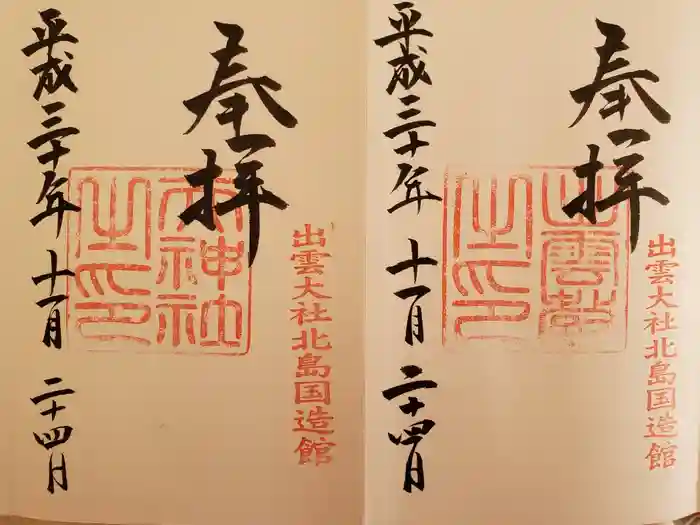 出雲大社北島国造館
奉拝
出雲教
之印
平成三十年十一月二十四日
出雲大社北島国造館
奉拝
天神社
之印
平成三十年十一月二十四日